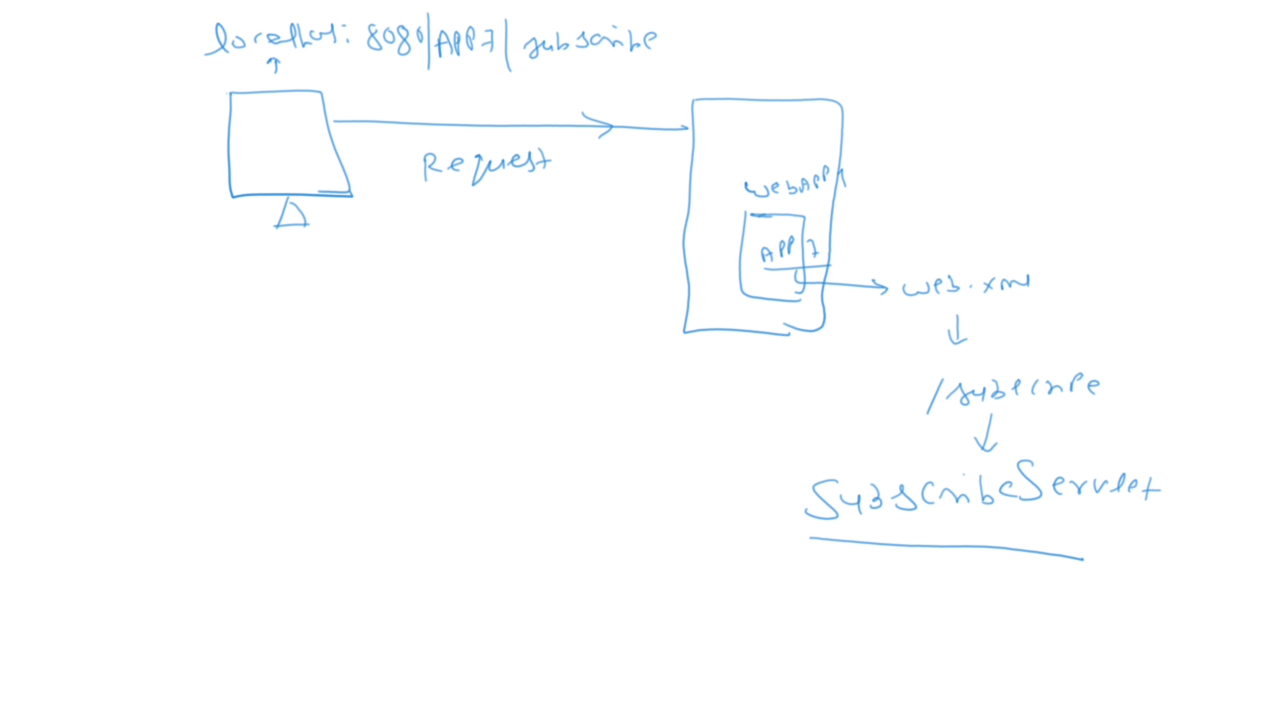 localhost: 8080/APP7/subscribe
Request
WebApps
APP7
web.xml
/subscribe
SubscribeServlet